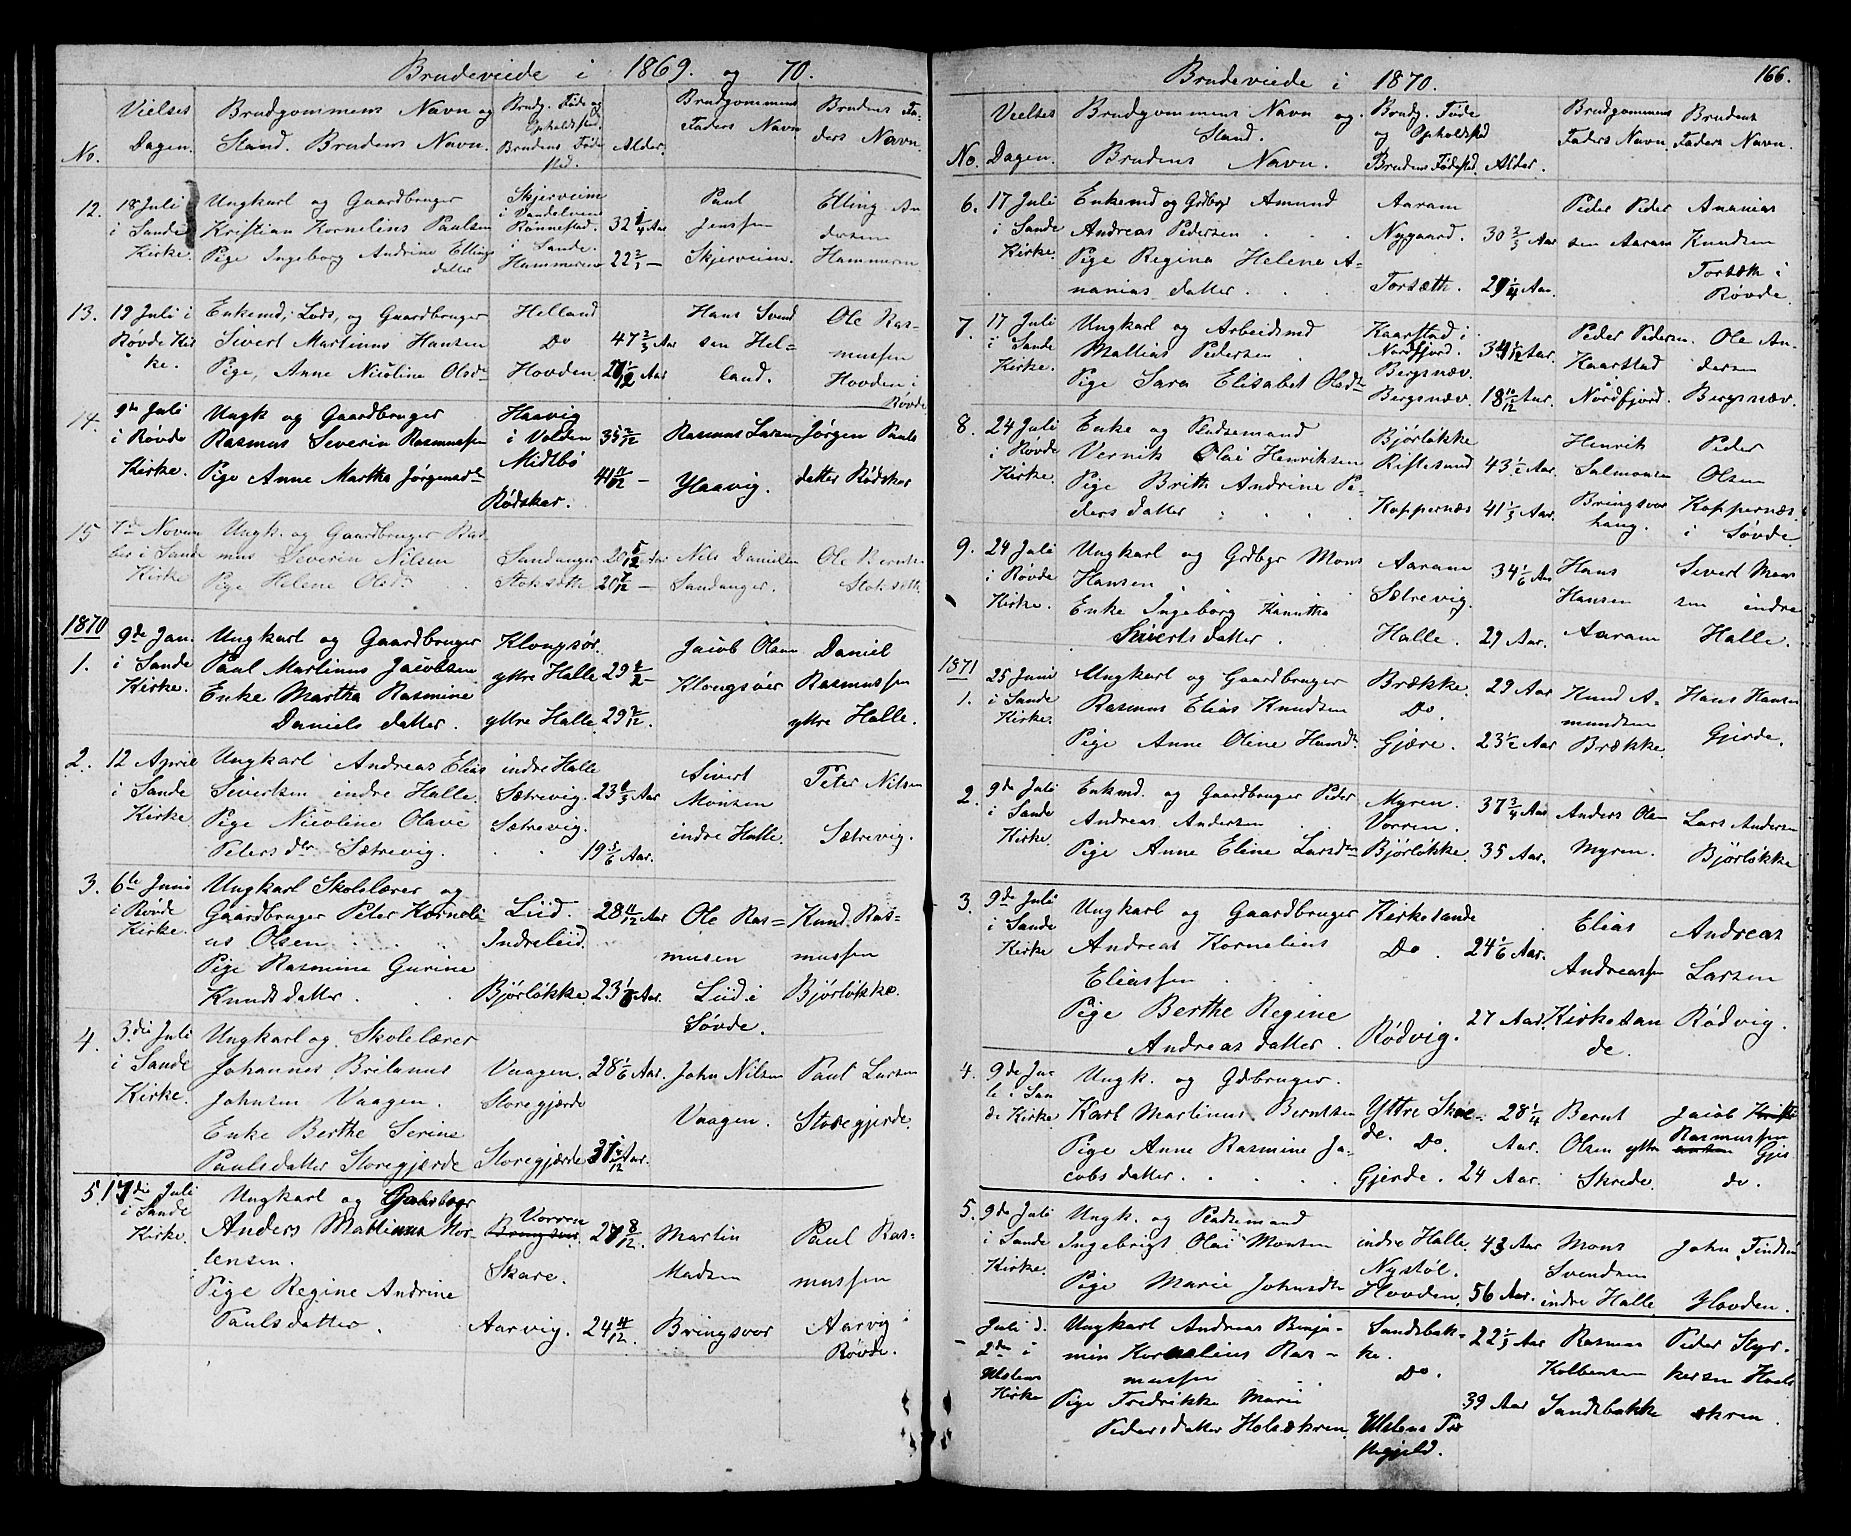 Brudeviede i 1869. og 70.
No.
Vielses Dagen.
Brudgommens Navn og Stand. Brudens Navn.
Brudg. Føde og Opholdssted. Brudens Føde sted.
Alder.
Brudgommens Faders Navn
Brudens Faders Navn.
12. 18 Juli i Sande Kirke.
Ungkarl og Gaardbruger
Kristian Kornelius Paulsen
Pige Ingeborg Andrine Ellings
datter
Skjerveim
i Vandelven
Rønnestad.
i Sande.
Hammeren
32 1/4 Aar
22 2/3 —
Paul
Jenssen
Skjerveim.
Elling An
dersen
Hammeren
13. 19 Juli i Røvde Kir ke.
Enkemd, Lods, og Gaardbruger
Sivert Martinus Hansen
Pige, Anne Nicoline Olsdr
Helland
Do
Hovden.
47 2/3 Aar
Hans Svend
sen Hel=
land.
Ole Ras-
mussen
Hovden i
Røvde
14. 9de Juli i Røvde Kirke.
Ungk og Gaardbruger
Rasmus Severin Rasmussen
Pige Anne Martha Jørgensdr
Haavig
i Volden
Midtbø
Rødskar.
35 2/12
Rasmus Larsen
Haavig.
Jørgen Pauls
datter Rødskar
15 7de Novem ber i Sande Kirke
Ungk. og Gaardbruger Ras
mus Severin Nilsen
Pige Helene Olsdr
Sandanger
Stokseth
20 5/12 Aar
20 —
Nils Danielsen
Sandanger.
Ole Berntsen
Stokseth
1870
1. 9de Jan. i Sande Kirke.
Ungkarl og Gaardbruger
Paul Martinus Jacobsen
Enke Martha Rasmine
Daniels datter.
Klongsør.
yttre Halle
yttre Halle
29
29
Jacob Olsen
Klongsøer
Daniel
Rasmussen
yttre Halle.
2. 12 April i Sande Kirke
Ungkarl Andreas Elias
Sivertsen indre Halle.
Pige Nicoline Olave
Peters dr Sætrevig.
indre Halle
Sætrevig.
Sætrevig.
23 Aar
19 5/6 Aar.
Sivert
Monsen
indre Halle.
Peter Nilsen
Sætrevig.
3. 6te Juni i Røvde Kirke.
Ungkarl Skolelærer og
Gaardbruger Peter Korneli-
us Olsen
Pige Rasmine Gurine
Knudsdatter.
Liid.
Indreliid.
Bjørløkke.
28 11/12 Aar
23 Aar.
Ole Ras=
musen
Liid i
Søvde.
Knud. Ras=
mussen
Bjørløkke.
4. 3die Juli i Sande Kirke.
Ungkarl og. Skolelærer
Johannes Brilanus
Johnsen Vaagen.
Enke Berthe Serine
Paulsdatter Storegjærde
Vaagen.
Storegjærde
Storegjærde
28 1/6 Aar.
31 Aar.
John Nilsen
Vaagen.
Paul Larsen
Storegjerde.
5. 17die Juli i Sande Kirke.
Ungkarl og Gaardbgr
Anders Mathinus Mor-
tensen.
Pige Regine Andrine
Paulsdatter.
Vorren
Bringsvor.
Skare.
Aarvig.
27 8/12.
24 11/12.
Martin
Madsen
Bringsvor
Paul Ras-
mussen
Aarvig i
Røvde.
Brudeviede i 1870.
166.
No.
Vielses Dagen.
Brudgommens Navn og Stand.
Brudens Navn.
Brudg. Føde og Opholdsted
Brudens Fødested
Alder.
Brudgommens Faders Navn
Brudens Faders Navn.
6. 17 Juli i Sande Kirke.
Enkemd og Grdbgr Amund
Andreas Pedersen
Pige Regina Helene A-
nanias datter
Aaram
Nygaard.
Torsæth.
30 2/3 Aar
29 1/4 Aar.
Peder Peder
sen Aaram
Ananias
Knudsen
Torsæth i
Røvde.
7. 17 Juli i Sande Kirke.
Ungkarl og Arbeidsmd
Mathias Pedersen
Pige Sara Elisabet Olsdtr
Kaarstad i
Nordfjord.
Bergsnæv.
Bergsnæv.
34 1/12 Aar.
18 11/12 Aar.
Peder Pedersen.
Kaarstad
Nordfjord.
Ole An-
dersen
Bergsnæv.
8. 24 Juli i Røvde Kirke.
Enke og Pladsemand
Vernik Olai Henriksen
Pige Brith Andrine Pe-
ders datter
Bjørløkke
Ristesund
Koppernæs
43 1/2 Aar
41 1/3 Aar.
Henrik
Salmonsen
Bringsvor
haug.
Peder
Olsen
Koppernæs
i Søvde.
9. 24 Juli i Røvde Kirke.
Ungkarl og Grdbgr Mons
Hansen
Enke Ingeborg Knutha
Siverts datter.
Aaram
Sætrevig.
Halle.
34 1/6 Aar
29 Aar.
Hans
Hansen
Aaram
Sivert Mon
sen indre
Halle.
1871
1. 25 Juni i Sande Kirke.
Ungkarl og Gaardbruger
Rasmus Elias Knudsen
Pige Anne Oline Hansdtr
Brække.
Do.
Gjære.
29 Aar
23 1/2 Aar
Knud A-
mundsen
Brække.
Hans Hansen
Gjerde.
2. 9de Juli i Sande Kirke.
Enkmd. og Gaardbruger Peder
Andreas Andersen
Pige Anne Eline Larsdtr
Myren.
Vorren.
Bjørløkke
37 3/4 Aar
35 Aar.
Anders Olsen
Myren.
Lars Andersen
Bjørløkke
3. 9de Juli i Sande Kirke
Ungkarl og Gaardbruger
Andreas Kornelius
Eliassen
Pige Berthe Regine
Andreas datter.
Kirkesande
Do.
Rødvig.
24 1/6 Aar.
27 Aar.
Elias
Andreassen
Kirkesan
de.
Andreas
Larsen
Rødvig.
4. 9de Ju li i San de Kirke.
Ungk. og Gdbruger.
Karl Martinus Berntsen
Pige Anne Rasmine Ja-
cobs datter.
Yttre Skre-
de. Do.
Gjerde.
28 1/4
Aar.
24 Aar.
Bernt
Olsen yttre
Skrede.
Jacob
Rasmussen
Gjer
de.
5. 9de Juli i Sande Kirke.
Ungk. og Pladsemand
Ingebrigt Olai Monsen
Pige Marie Johnsdtr
indre Halle.
Nystøl.
Hovden.
43 Aar
56 Aar.
Mons
Svendsen
indre Halle
John Findsen
Hovden.
Juli d. 2den i Ulstens Kirke
Ungkarl Andreas Benja-
min Kornelius Ras-
mussen
Pige Fredrikke Marie
Pedersdatter Holsekren
Sandsbak-
ke.
Do.
Ulstens Præ
stegjeld.
22 1/3 Aar
39 Aar
Rasmus
Kolbensen
Sandsbakke
Peder Styr-
kersen Hols
ekren.